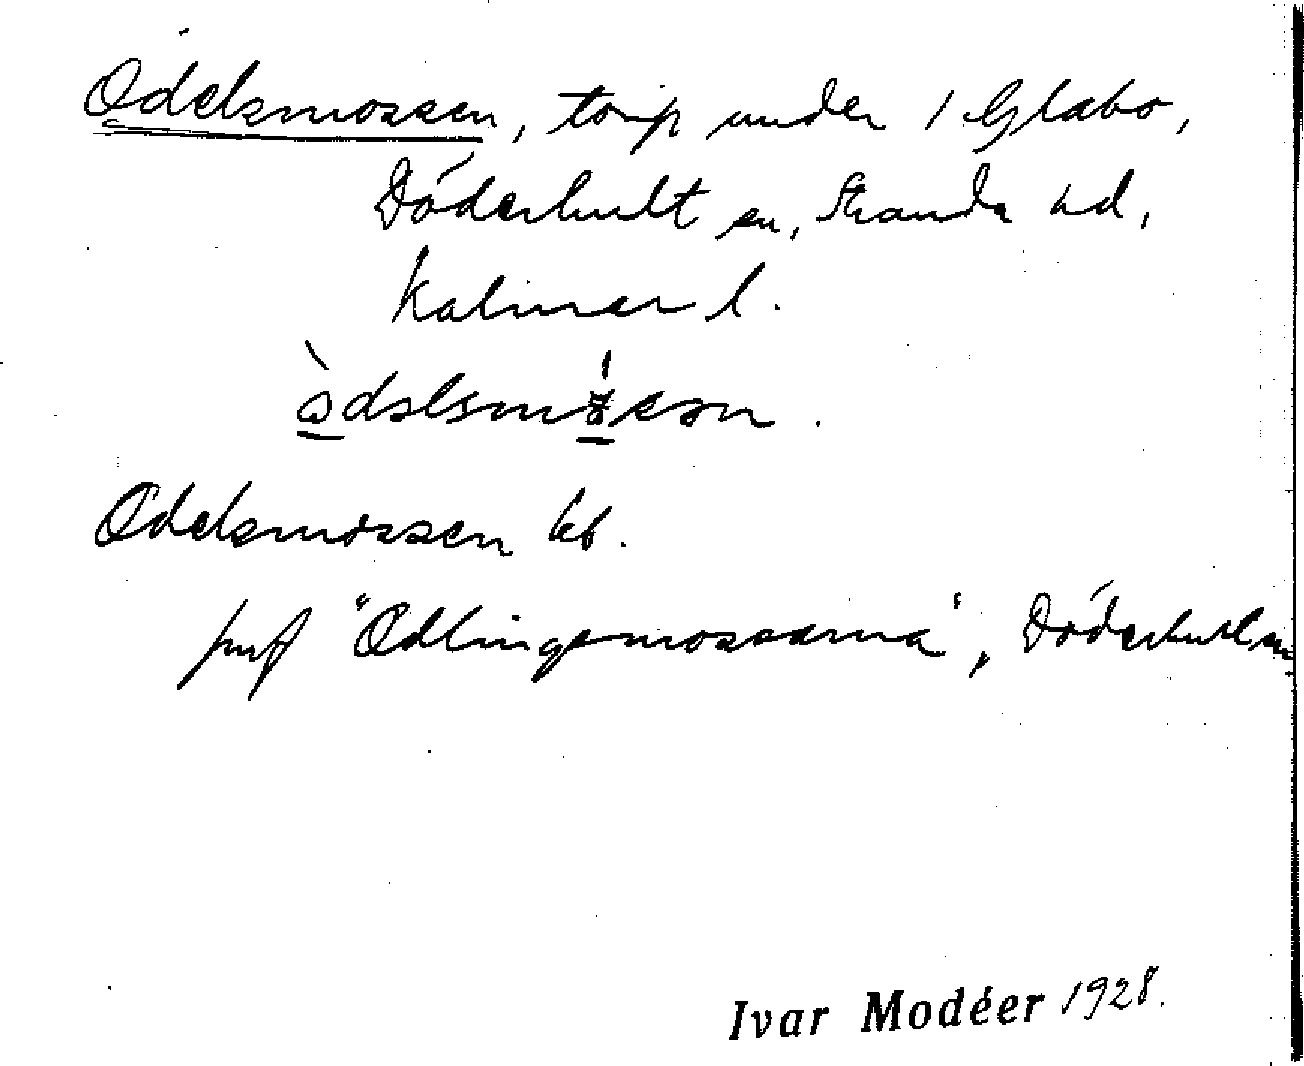 Odelsmossen, torp under 1 Glabo,
Döderhult sn, Stranda hd,
Kalmar l.
Odelsmossen kb.
jmf "Odlingsmossarna", Döderhult sn
Ivar Modéer 1928.